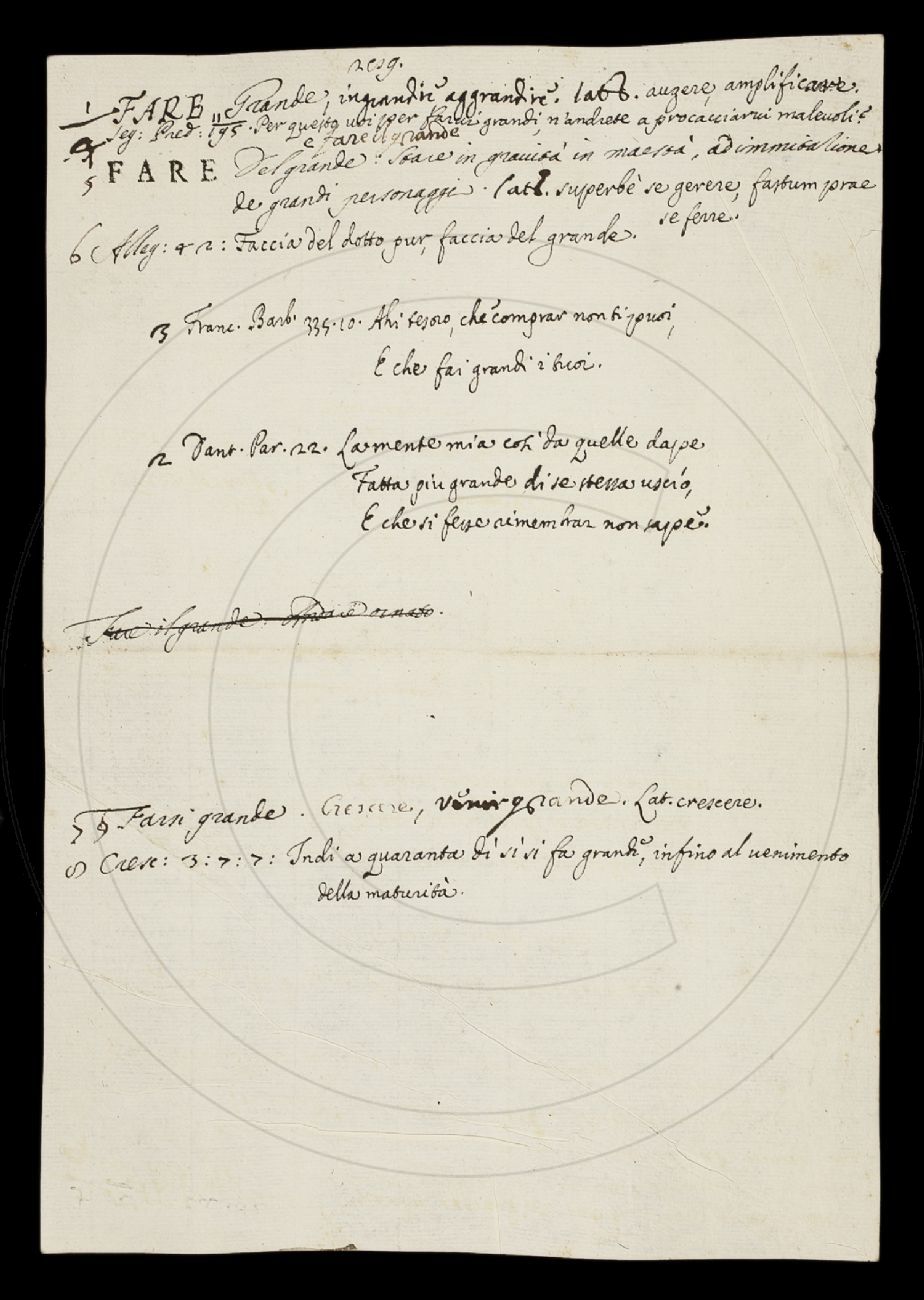 resg.
1 FARE Grande, ingrandire aggrandire. lat. augere, amplificare.
4 Seg: Pred: 195. Per questo voi per farvi grandi, n'andrete a procacciarvi malevoli
e Fare il grande
5 FARE Del grande: Stare in gravità in maestà, ad immitatione
de grandi personaggi. lat. superbè se gerere, fastum prae
se ferre.
6 Alleg: 42: Faccia del dotto pur, faccia del grande.
3 Franc. Barb. 335.10. Ahi tesoro, che comprar non ti puoi,
E che fai grandi i tuoi.
2 Dant. Par. 22. La mente mia cosi da quelle dape
Fatta piu grande di se stessa uscìo,
E che si fesse rimembrar non sape.
Fare il grande. ornato.
7 Farsi grande. Crescere, venir grande. Lat. crescere.
8 Cresc: 3: 7: 7: Indi a quaranta dì si si fa grande, infino al venimento
della maturità.